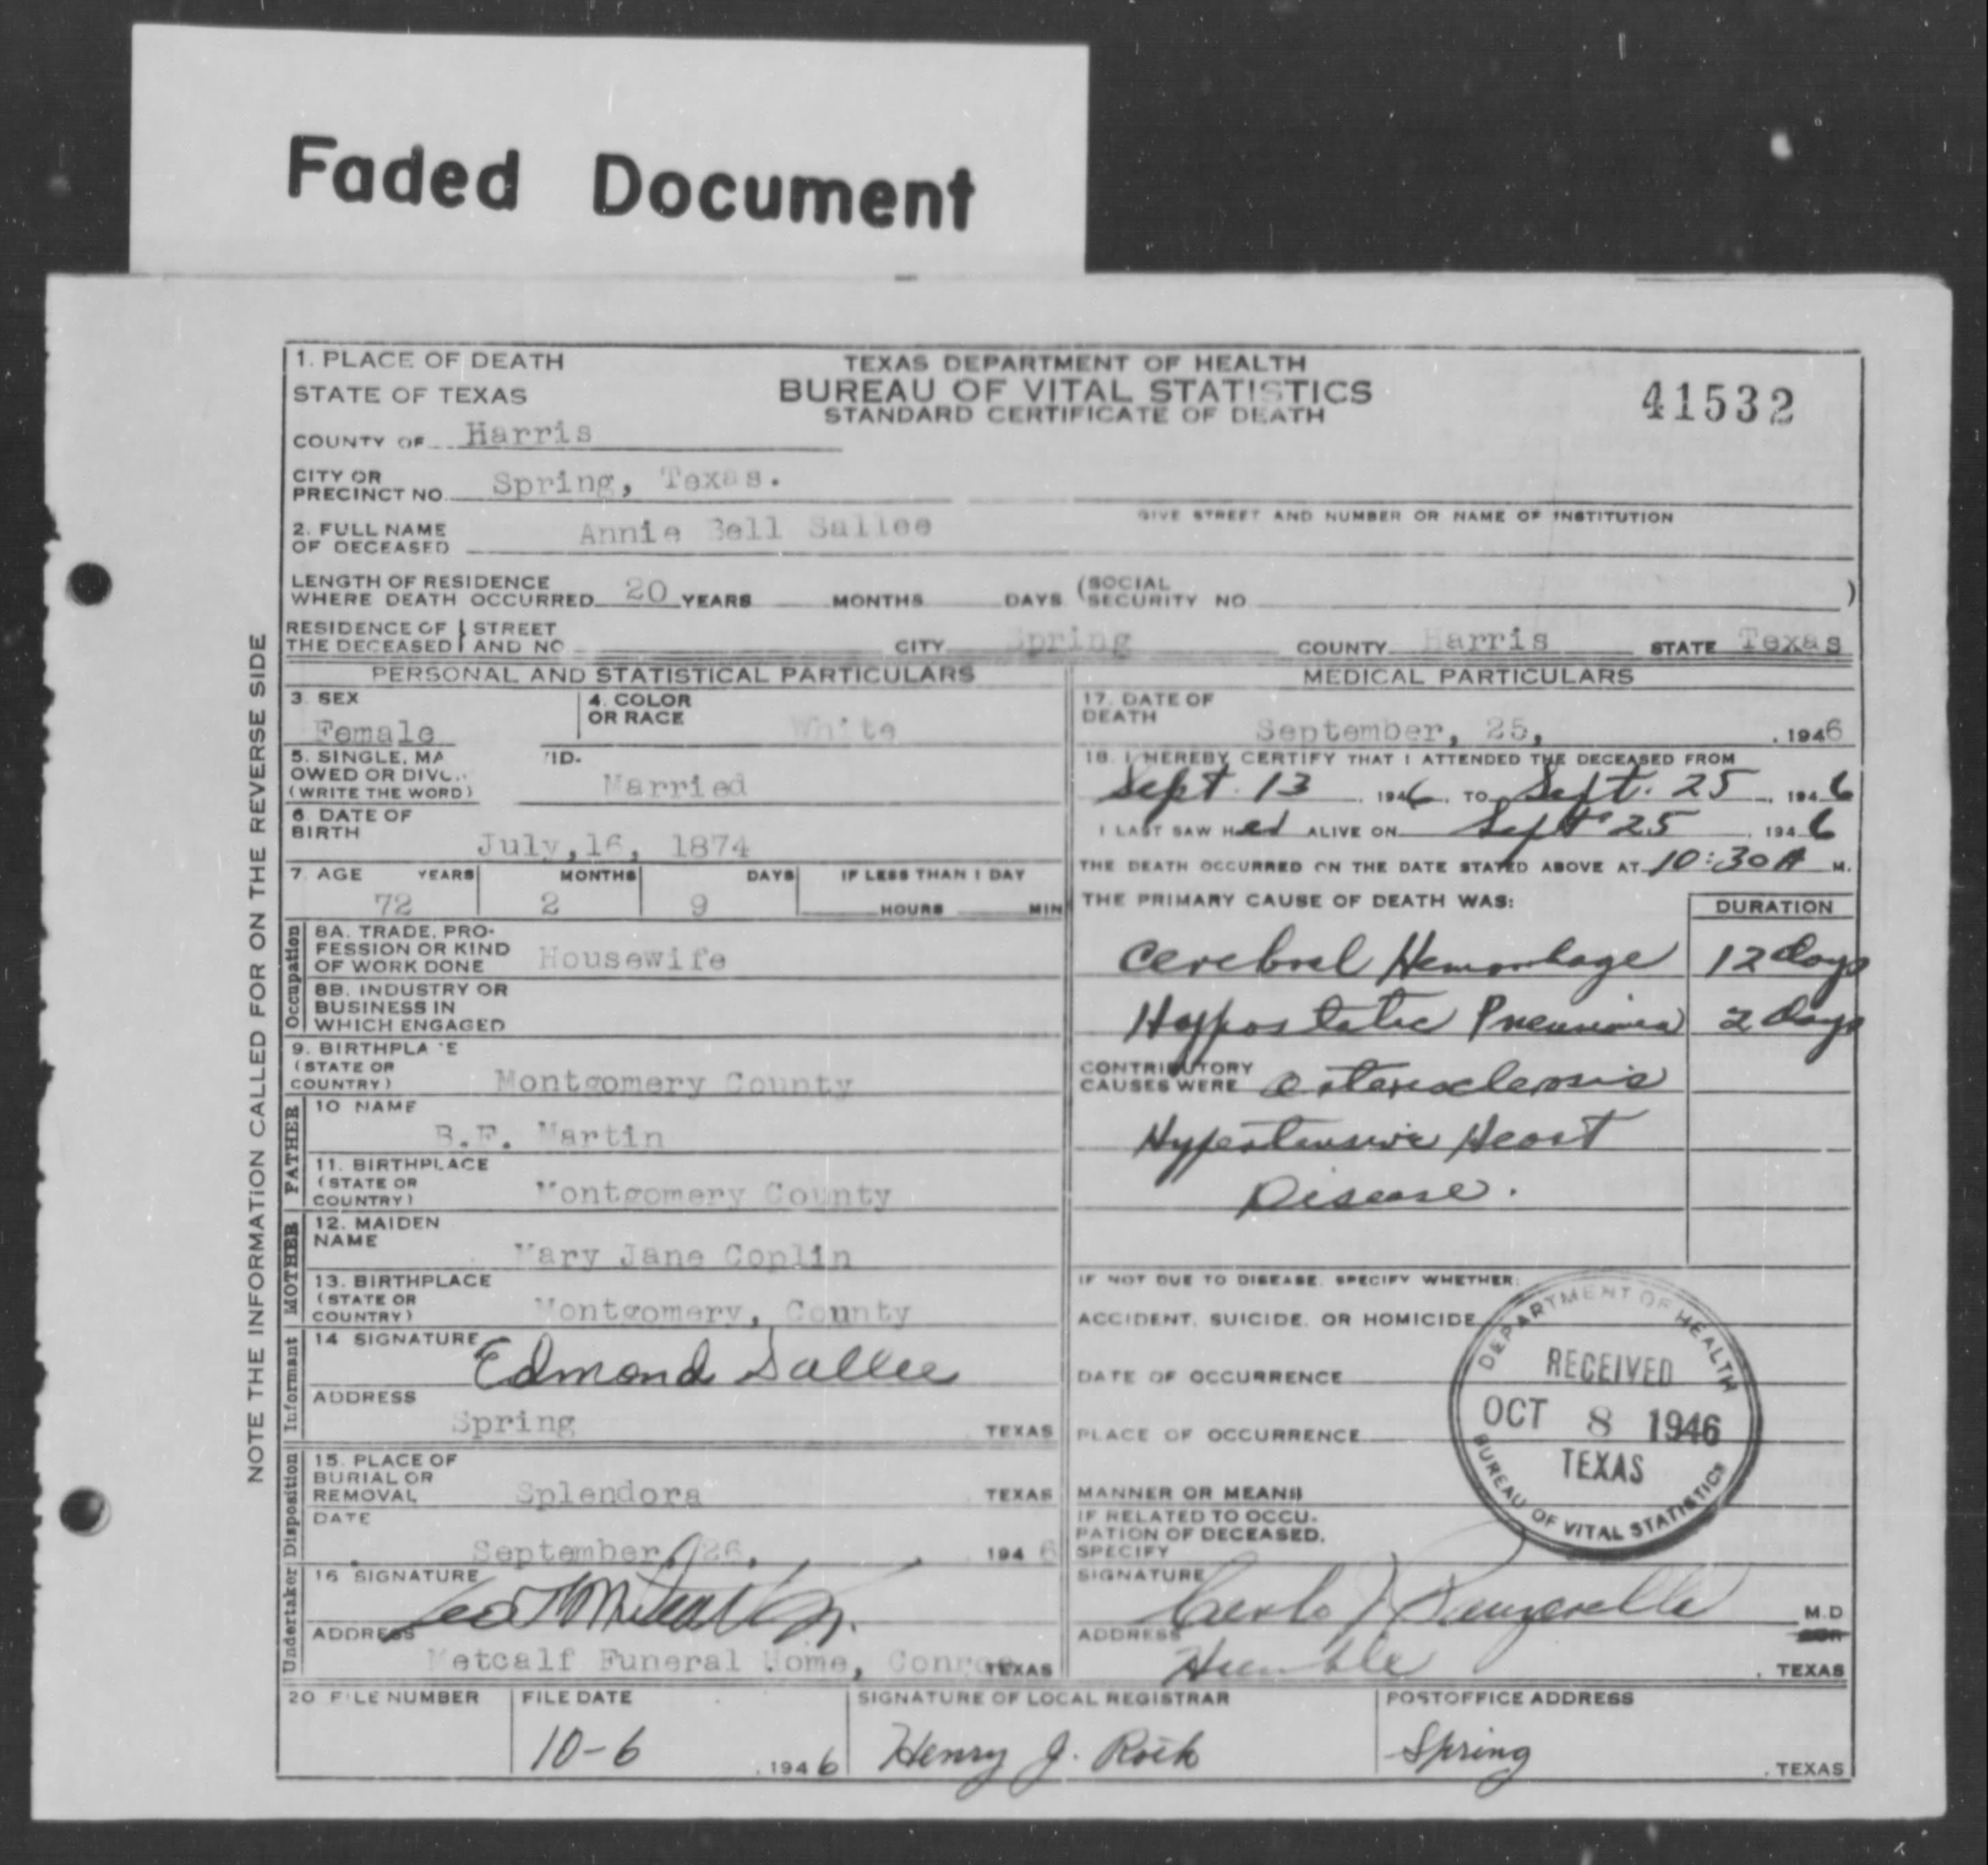 Faded Document
1. PLACE OF DEATH
STATE OF TEXAS
TEXAS DEPARTMENT OF HEALTH
BUREAU OF VITAL STATISTICS
STANDARD CERTIFICATE OF DEATH
41532
COUNTY OF Harris
CITY OR
PRECINCT NO. Spring, Texas.
GIVE STREET AND NUMBER OR NAME OF INSTITUTION
2. FULL NAME
OF DECEASED Annie Bell Sallee
LENGTH OF RESIDENCE
WHERE DEATH OCCURRED 20 YEARS MONTHS DAYS (SOCIAL SECURITY NO )
RESIDENCE OF THE DECEASED STREET AND NO CITY Spring COUNTY Harris STATE Texas
NOTE THE INFORMATION CALLED FOR ON THE REVERSE SIDE
PERSONAL AND STATISTICAL PARTICULARS
3. SEX
Female
4. COLOR
OR RACE White
5. SINGLE, MA 'ID-
OWED OR DIVO..
(WRITE THE WORD) Married
6. DATE OF
BIRTH July,16, 1874
7. AGE YEARS MONTHS DAYS IF LESS THAN 1 DAY
72 2 9 HOURS MIN
Occupation
8A. TRADE, PRO-
FESSION OR KIND
OF WORK DONE Housewife
8B. INDUSTRY OR
BUSINESS IN
WHICH ENGAGED
9. BIRTHPLA 'E
(STATE OR
COUNTRY) Montgomery County
FATHER
10 NAME
B.F. Martin
11. BIRTHPLACE
(STATE OR
COUNTRY) Montgomery County
MOTHER
12. MAIDEN
NAME Mary Jane Coplin
13. BIRTHPLACE
(STATE OR
COUNTRY) Montgomery, County
Informant
14 SIGNATURE Edmond Sallee
ADDRESS
Spring TEXAS
Disposition
15. PLACE OF
BURIAL OR
REMOVAL Splendora TEXAS
DATE
September 26, 1946
Undertaker
16 SIGNATURE
ADDRESS
Metcalf Funeral Home, Conroe TEXAS
MEDICAL PARTICULARS
17. DATE OF
DEATH September, 25, , 1946
18. I HEREBY CERTIFY THAT I ATTENDED THE DECEASED FROM
Sept. 13 , 1946, TO Sept. 25 , 1946
I LAST SAW Her ALIVE ON Sept 25 , 1946
THE DEATH OCCURRED ON THE DATE STATED ABOVE AT 10:30 A M.
THE PRIMARY CAUSE OF DEATH WAS: DURATION
Cerebral Hemorrhage 12 days
Hypostatic Pneumonia 2 days
CONTRIBUTORY
CAUSES WERE arteriosclerosis
Hypertensive Heart
Disease.
IF NOT DUE TO DISEASE, SPECIFY WHETHER:
ACCIDENT, SUICIDE, OR HOMICIDE
DATE OF OCCURRENCE
PLACE OF OCCURRENCE
MANNER OR MEANS
IF RELATED TO OCCU-
PATION OF DECEASED,
SPECIFY
DEPARTMENT OF HEALTH
RECEIVED
OCT 8 1946
TEXAS
BUREAU OF VITAL STATISTICS
SIGNATURE Carlo J. M.D
ADDRESS
Humble , TEXAS
20 FILE NUMBER
FILE DATE
10-6 , 1946
SIGNATURE OF LOCAL REGISTRAR
Henry J. Roth
POSTOFFICE ADDRESS
Spring , TEXAS